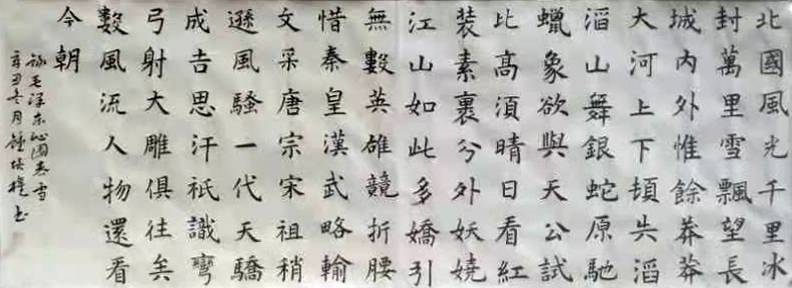 北國風光千里冰
封萬里雪飄望長
城内外惟餘莽莽
大河上下頓失滔
滔山舞銀蛇原馳
蠟象欲與天公試
比高須晴日看紅
裝素裹兮外妖嬈
江山如此多嬌引
無數英雄競折腰
惜秦皇漢武略輸
文采唐宗宋祖稍
遜風騷一代天驕
成吉思汗祇識彎
弓射大雕俱往矣
數風流人物還看
今朝
錄毛泽东沁園春雪
辛丑冬月鍾書